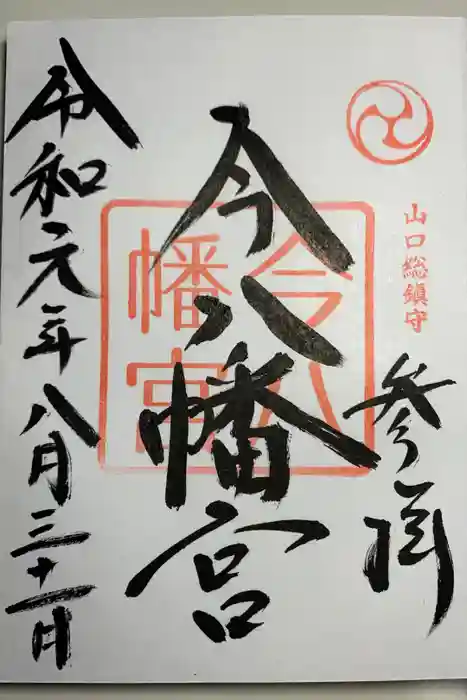 山口総鎮守
参拝
今八幡宮
今八幡宮
令和元年八月三十一日